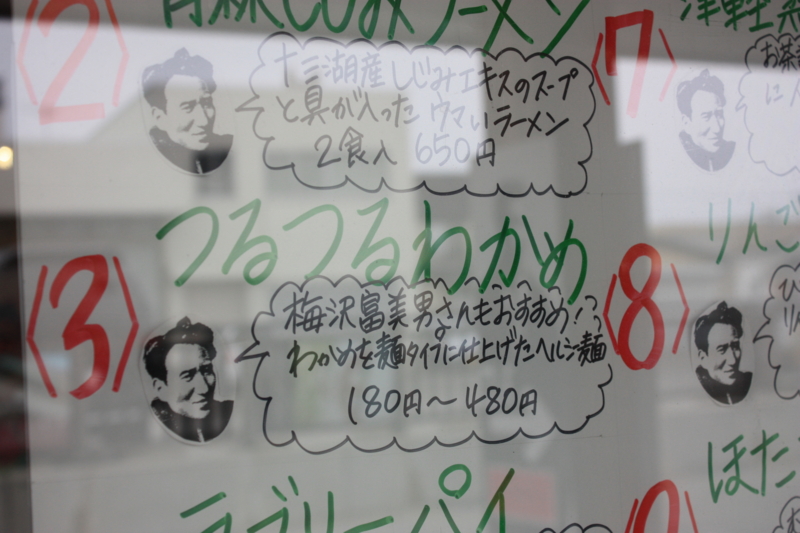 しじみラーメン
〈2〉
十三湖産しじみエキスのスープ
と具が入った ウマいラーメン
2食入 650円
つるつるわかめ
〈3〉
梅沢富美男さんもおすすめ!
わかめを麺タイプに仕上げたヘルシー麺
180円〜480円
ラブリーパイ
〈7〉
津軽
お茶
りんご
〈8〉
ほた